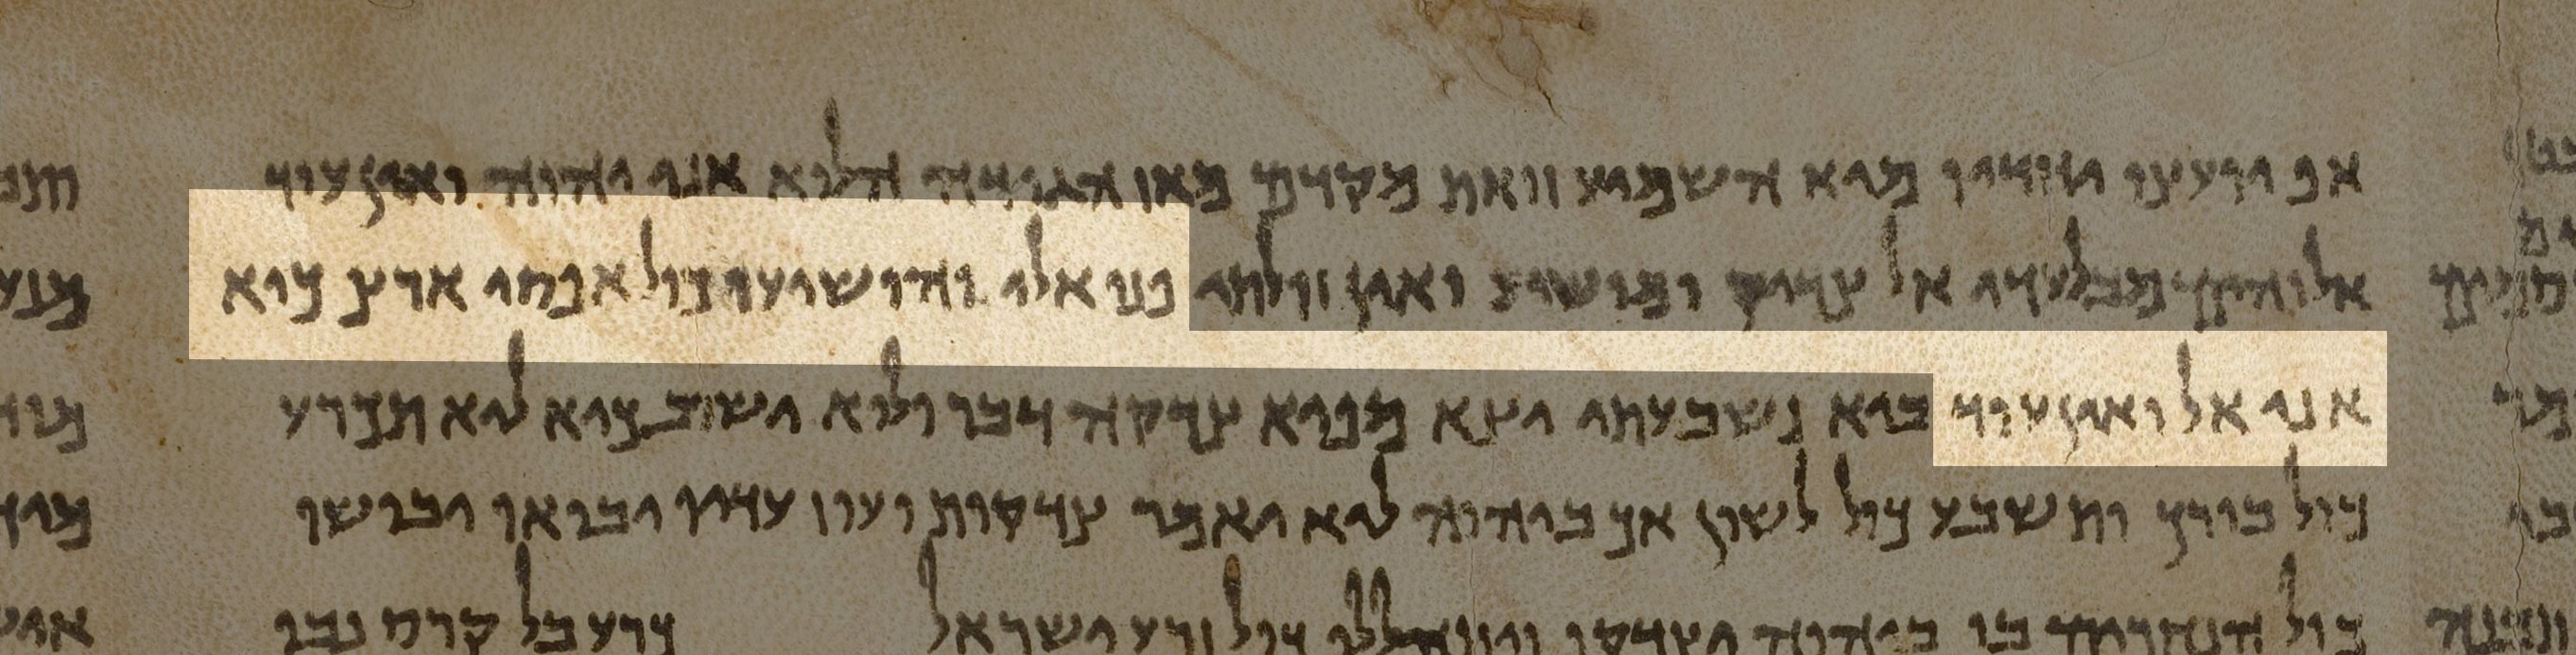 אפ יועצו יחדיו מיא השמיע זואת מקדם מאז הגידה הלוא אני יהוה ואין עוד
אלוהים מבלעדי אל צדיק ומושיע ואין זולתי פנו אלי והושועו כול אפסי ארץ כיא
אני אל ואין עוד ביא נשבעתי יצא מפיא צדקה דבר ולא ישוב כיא ליא תכרע
כול בורך ותשבע כול לשון אך ביהוה ליא יאמר צדקות ועוז עדיו יבואו יבושו
כול הנחרים בו ביהוה יצדקו ויתהללו כול זרע ישראל כרע בל קרס נבו